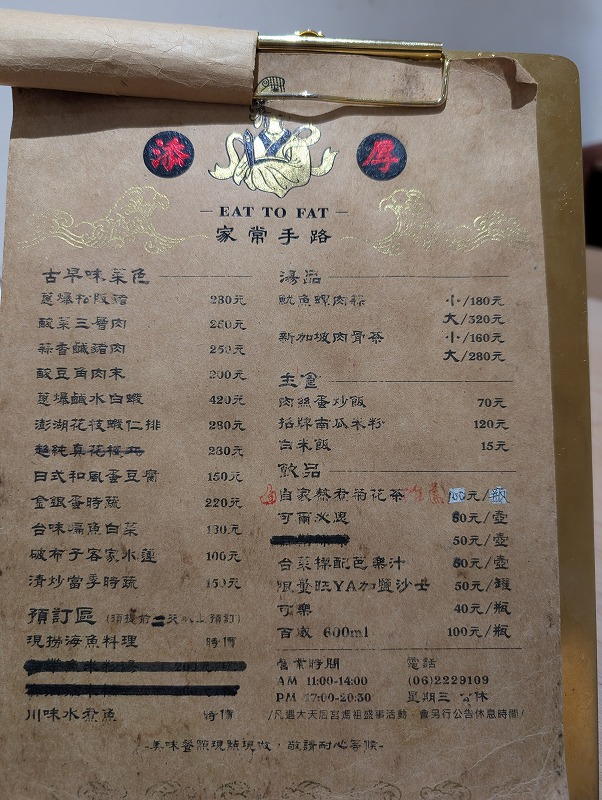 添 厚
EAT TO FAT
家常手路
古早味菜色
蔥爆松阪豬 280元
酸菜三層肉 250元
蒜香鹹豬肉 250元
酸豆角肉末 200元
蔥爆鹹水白蝦 420元
澎湖花枝蝦仁排 280元
超純真花枝丸 230元
日式和風蛋豆腐 150元
金銀蛋時蔬 220元
台味扁魚白菜 130元
破布子客家水蓮 100元
清炒當季時蔬 150元
預訂區 (須提前二天以上預訂)
現撈海魚料理 時價
川味水煮魚 時價
湯品
魷魚螺肉蒜 小/180元
大/320元
新加坡肉骨茶 小/160元
大/280元
主食
肉絲蛋炒飯 70元
招牌南瓜米粉 120元
白米飯 15元
飲品
自家熬煮菊花茶 推薦 元/瓶
可爾必思 60元/壺
50元/壺
台菜標配芭樂汁 50元/壺
限量旺YA加鹽沙士 50元/罐
可樂 40元/瓶
百威 600ml 100元/瓶
營業時間
AM 11:00-14:00
PM 17:00-20:30
電話
(06)2229109
星期三 公休
/凡遇大天后宮媽祖盛事活動,會另行公告休息時間/
-美味餐點現點現做,敬請耐心等候-